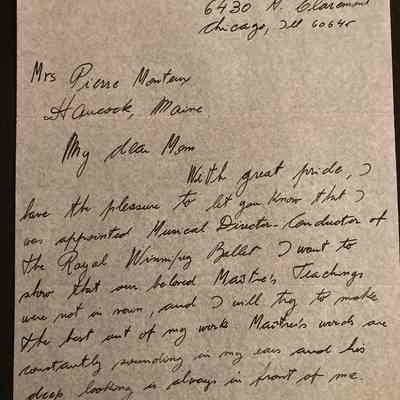 6430 N. Claremont
Chicago, Ill 60645
Mrs Pierre Monteux
Hancock, Maine
My dear Mom
With great pride, I
have the pleasure to let you know that I
was appointed Musical Director-Conductor of
the Royal Winnipeg Ballet I want to
show that our beloved Maitre's Teachings
were not in vain, and I will try to make
the best out of my work. Maitre's words are
constantly sounding in my ears and his
deep looking is always in front of me.